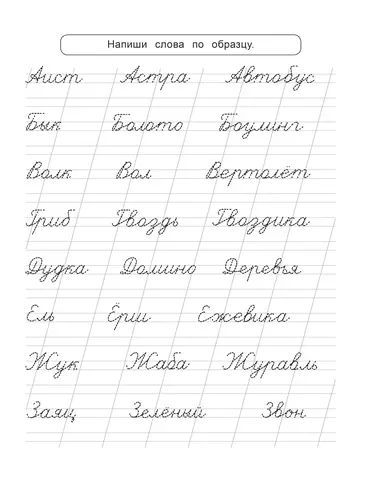 Напиши слова по образцу.
Аист Астра Автобус
Бык Болото Боулинг
Волк Вол Вертолёт
Гриб Гвоздь Гвоздика
Дудка Домино Деревья
Ель Ёрш Ежевика
Жук Жаба Журавль
Заяц Зелёный Звон